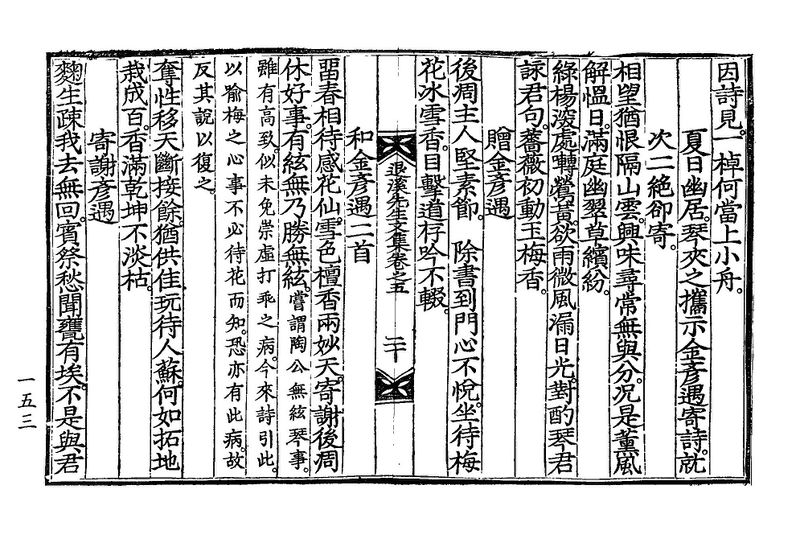 因詩見。一棹何當上小舟。
夏日幽居。琴夾之攜示金彥遇寄詩。就
次二絕卻寄。
相望猶恨隔山雲。興味尋常無與分。况是薰風
解慍日。滿庭幽翠草繽紛。
綠楊深處囀鶯黃。欲雨微風漏日光。對酌琴君
詠君句。薔薇初動玉梅香。
贈金彥遇
後凋主人堅素節。除書到門心不悅。坐待梅
花冰雪香。目擊道存吟不輟。
退溪先生文集卷之五 二十
和金彥遇二首
習春相待感花仙。雪色檀香兩妙天。寄謝後凋
休好事。有絃無乃勝無絃。嘗謂陶公無絃琴事。
雖有高致。似未免崇虛打乖之病。今來詩引此。
以喻梅之心事不必待花而知。恐亦有此病。故
反其說以復之。
奪性移天斷接餘。猶供佳玩待人蘇。何如拓地
栽成百。香滿乾坤不淡枯。
寄謝彥遇
麴生疎我去無回。賓祭愁聞甕有埃。不是與君
一五三